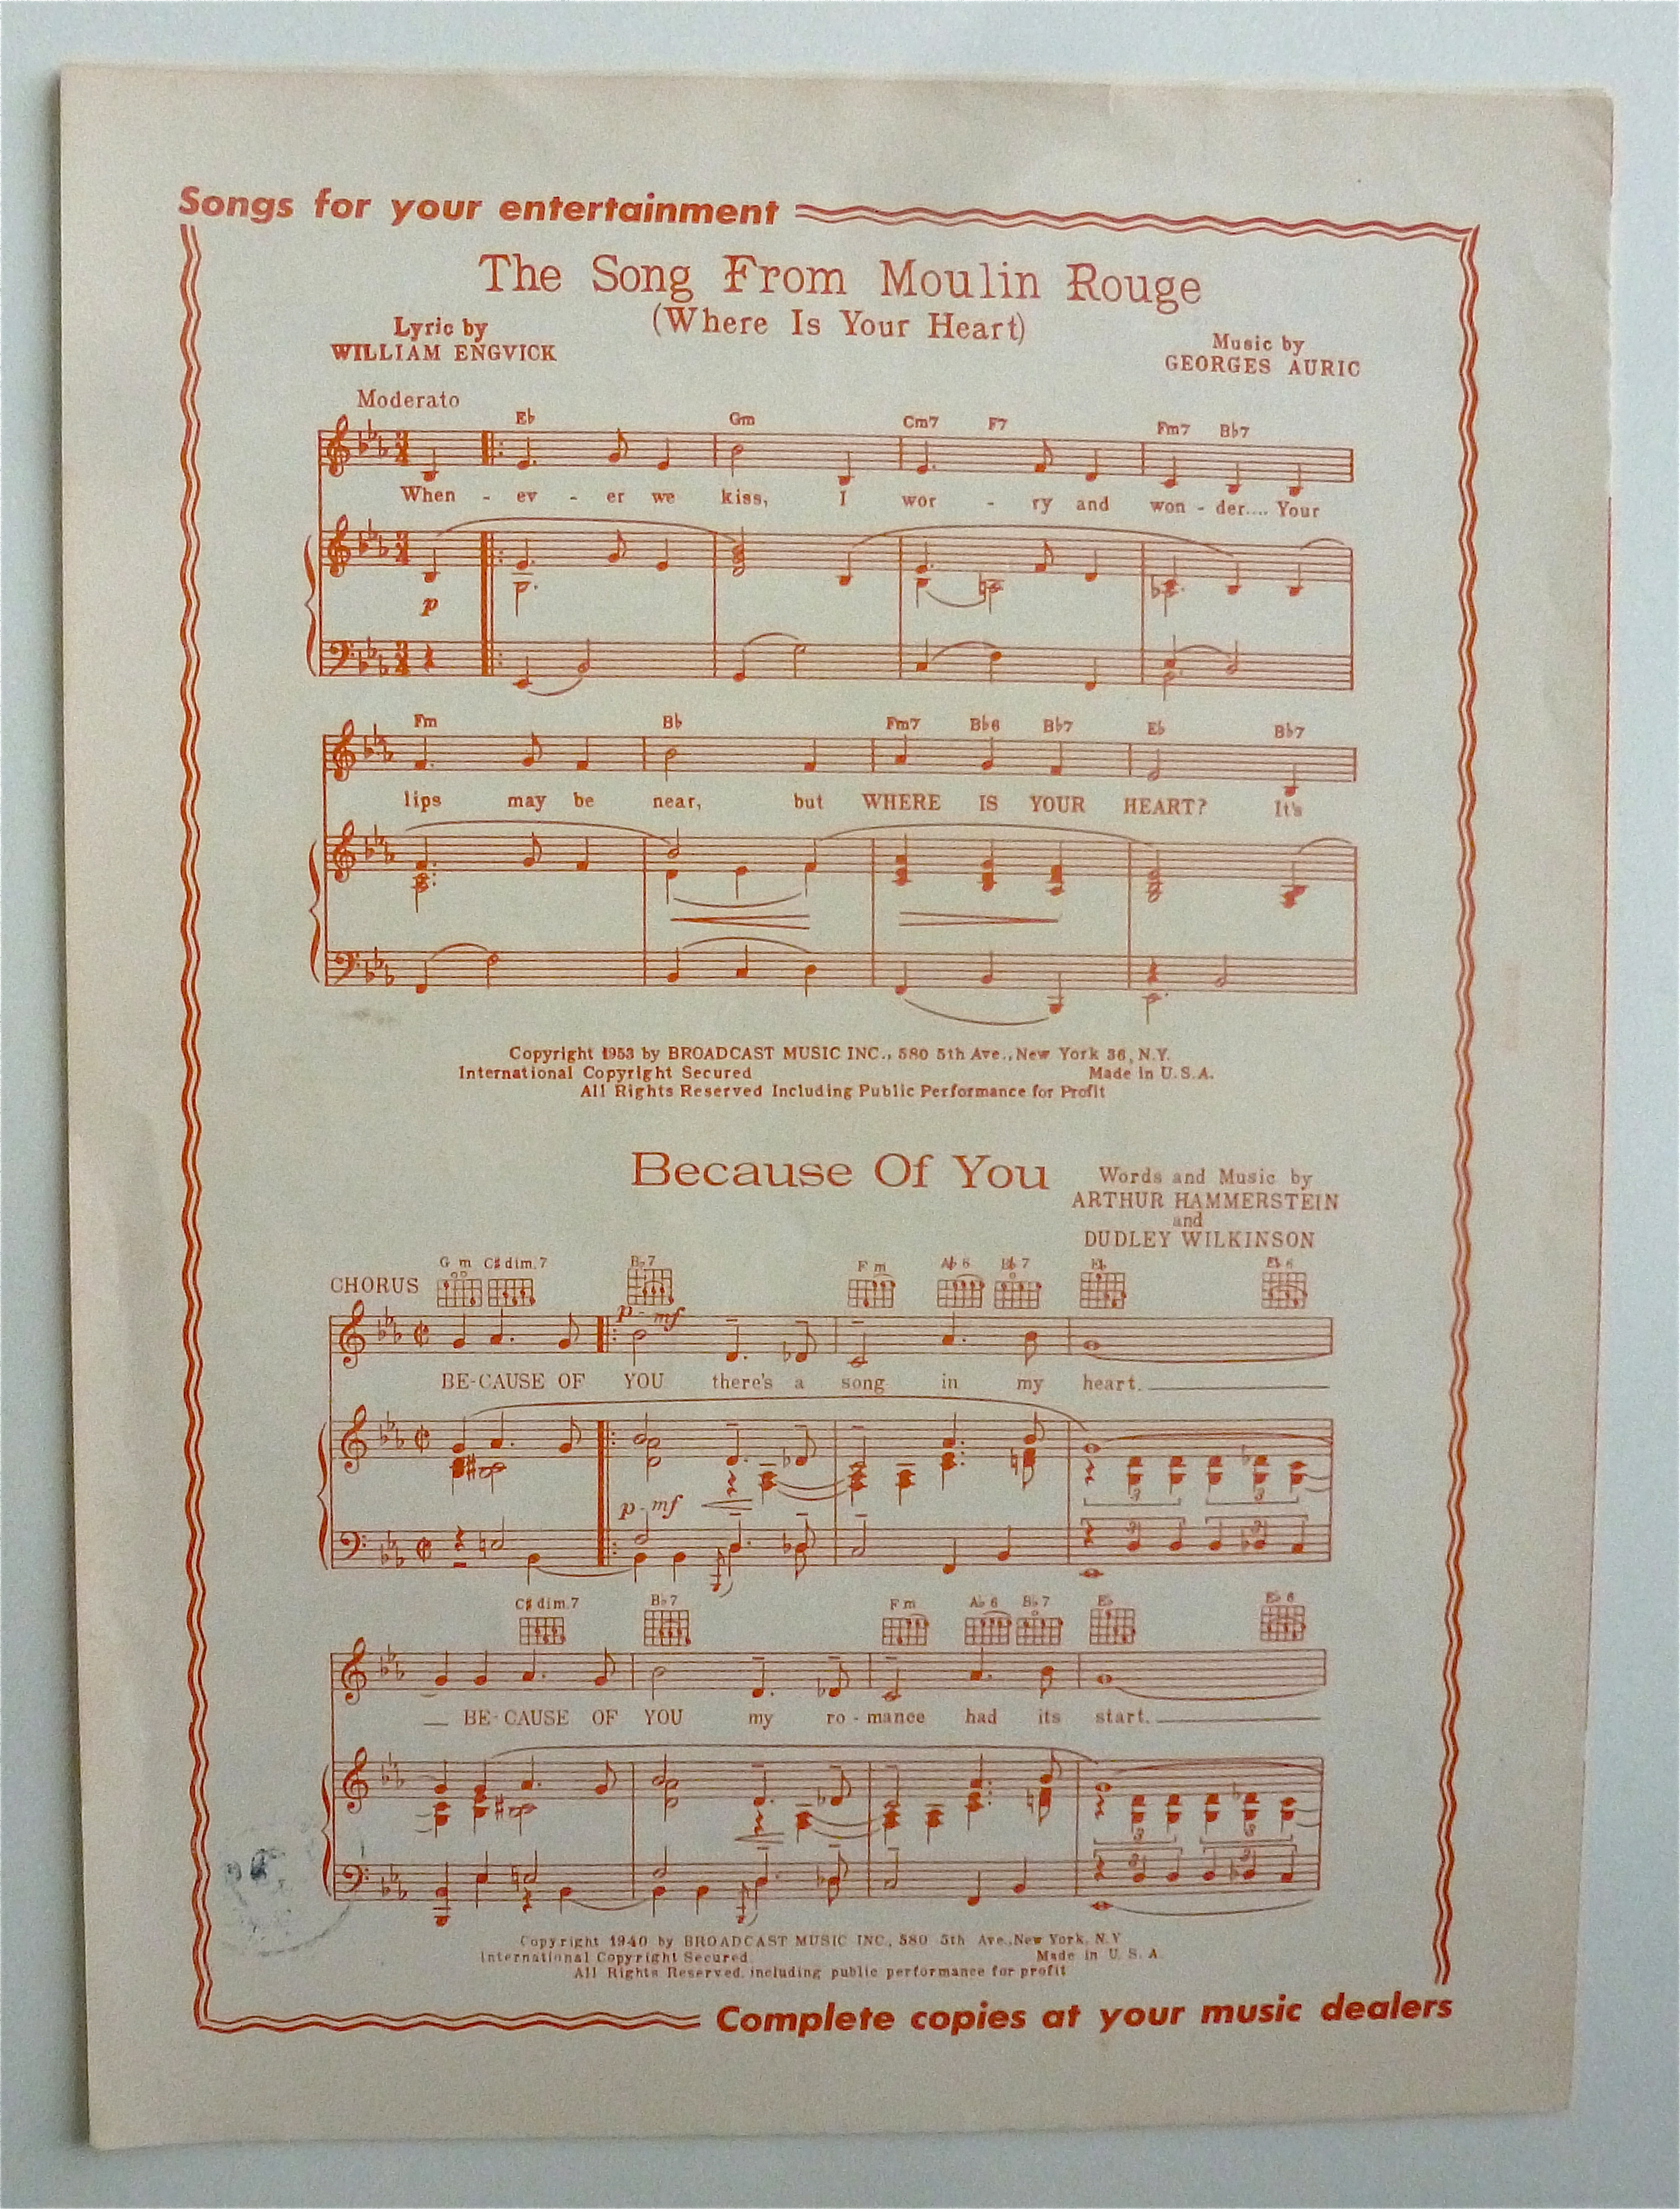 Songs for your entertainment
The Song From Moulin Rouge
(Where Is Your Heart)
Lyric by
WILLIAM ENGVICK
Music by
GEORGES AURIC
Moderato
E♭ Gm Cm7 F7 Fm7 B♭7
When - ev - er we kiss, I wor - ry and won - der.... Your
p
Fm B♭ Fm7 B♭6 B♭7 E♭ B♭7
lips may be near, but WHERE IS YOUR HEART? It's
Copyright 1953 by BROADCAST MUSIC INC., 580 5th Ave., New York 36, N.Y.
International Copyright Secured Made in U.S.A.
All Rights Reserved Including Public Performance for Profit
Because Of You
Words and Music by
ARTHUR HAMMERSTEIN
and
DUDLEY WILKINSON
G m C♯dim.7 B♭7 F m A♭6 B♭7 E♭ E♭6
CHORUS
p - mf
BE-CAUSE OF YOU there's a song in my heart.
p-mf
3 3
3 3
C♯dim.7 B♭7 F m A♭6 B♭7 E♭ E♭6
BE-CAUSE OF YOU my ro - mance had its start.
3 3
3 3
Copyright 1940 by BROADCAST MUSIC INC., 580 5th Ave., New York, N.Y
International Copyright Secured Made in U.S.A.
All Rights Reserved, including public performance for profit
Complete copies at your music dealers